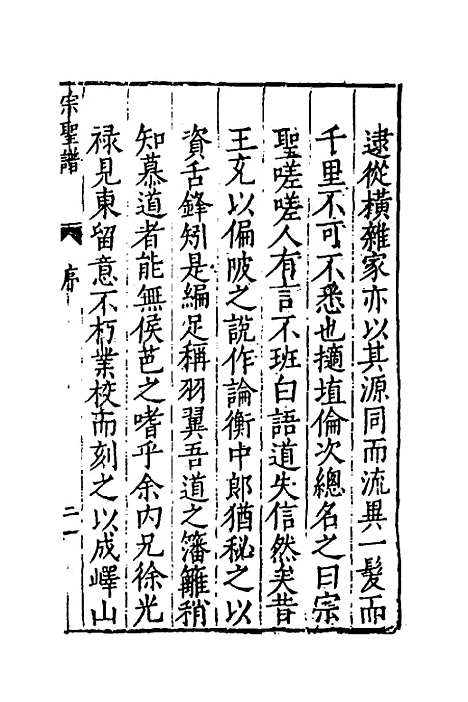 逮從橫雜家亦以其源同而流異一髮而
千里不可不悉也擿埴倫次總名之曰宗
聖嗟嗟人有言不班白語道失信然矣昔
王充以偏陂之說作論衡中郎猶秘之以
資舌鋒矧是編足稱羽翼吾道之籓籬稍
知慕道者能無侯芭之嗜乎余內兄徐光
祿見東留意不朽業校而刻之以成嶧山
宗聖譜
序
二